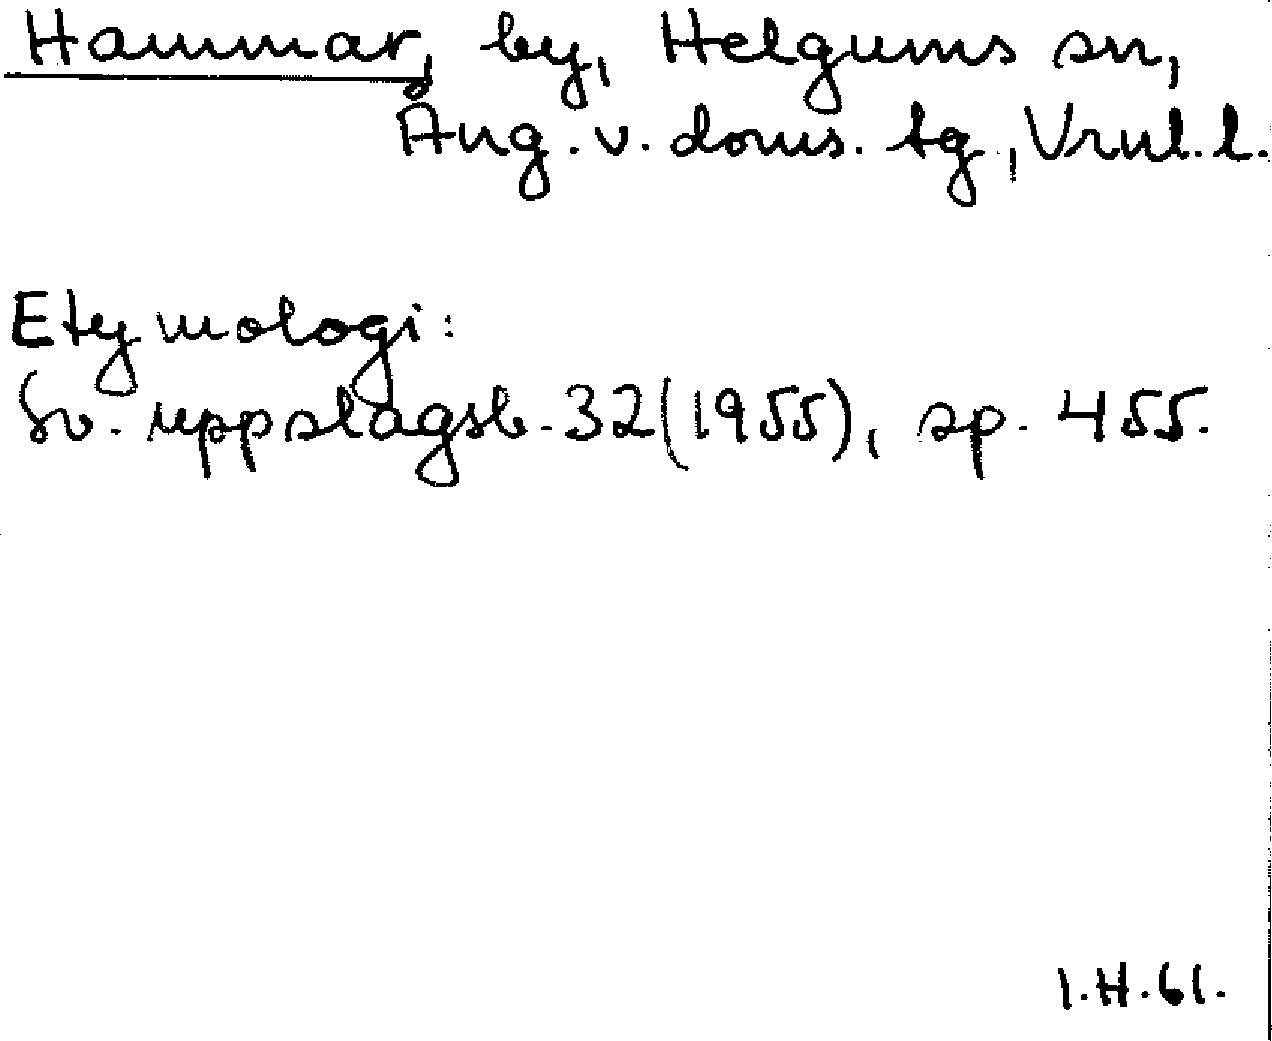 Hammar, by, Helgums sn,
Ång. v. doms. tg, Vrnl. l.
Etymologi:
Sv. uppslagsb. 32 (1955), sp. 455.
I.H. 61.